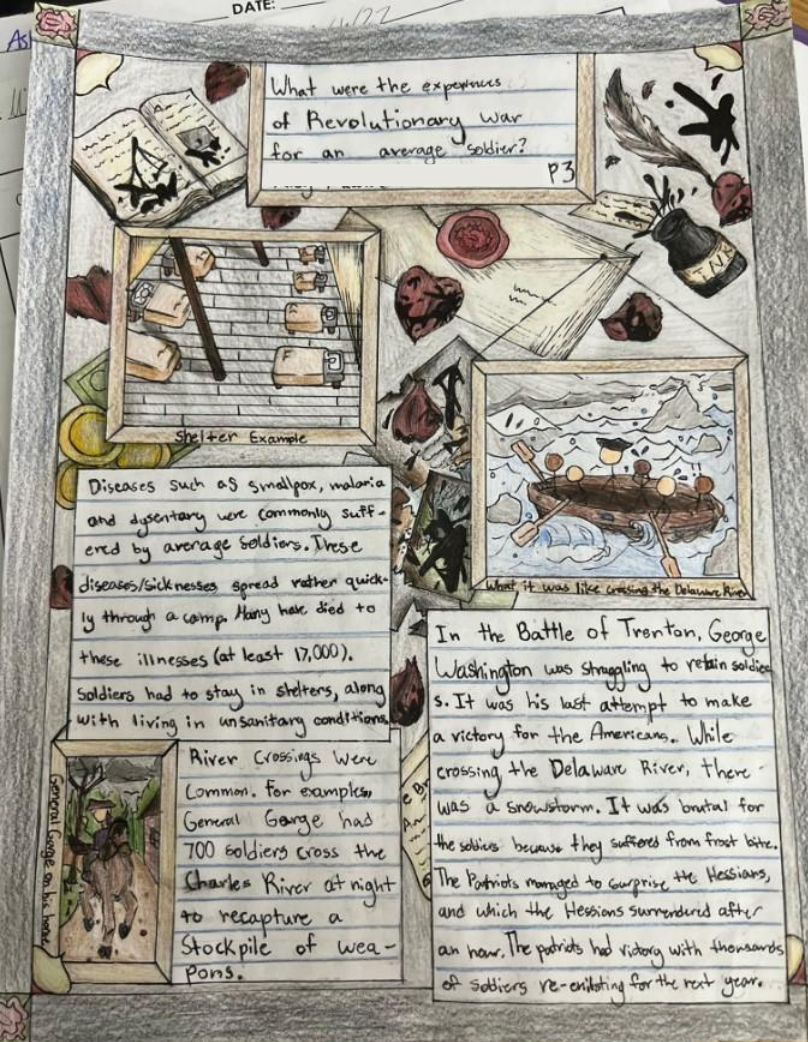 DATE:
What were the experiences
of Revolutionary War
for an average soldier?
P3
INK
Shelter Example
What it was like crossing the Delaware River
Diseases such as smallpox, malaria
and dysentary were commonly suff-
ered by average soldiers. These
diseases/sicknesses spread rather quick-
ly through a camp. Many have died to
these illnesses (at least 17,000).
Soldiers had to stay in shelters, along
with living in unsanitary conditions.
General George on his horse
River Crossings were
Common. For examples,
General George had
700 soldiers cross the
Charles River at night
to recapture a
Stockpile of wea-
pons.
In the Battle of Trenton, George
Washington was struggling to retain soldier
s. It was his last attempt to make
a victory for the Americans. While
crossing the Delaware River, there
was a snowstorm. It was brutal for
the soldiers because they suffered from frost bite.
The Patriots managed to surprise the Hessians,
and which the Hessians surrendered after
an hour. The patriots had victory with thousands
of soldiers re-enlisting for the next year.